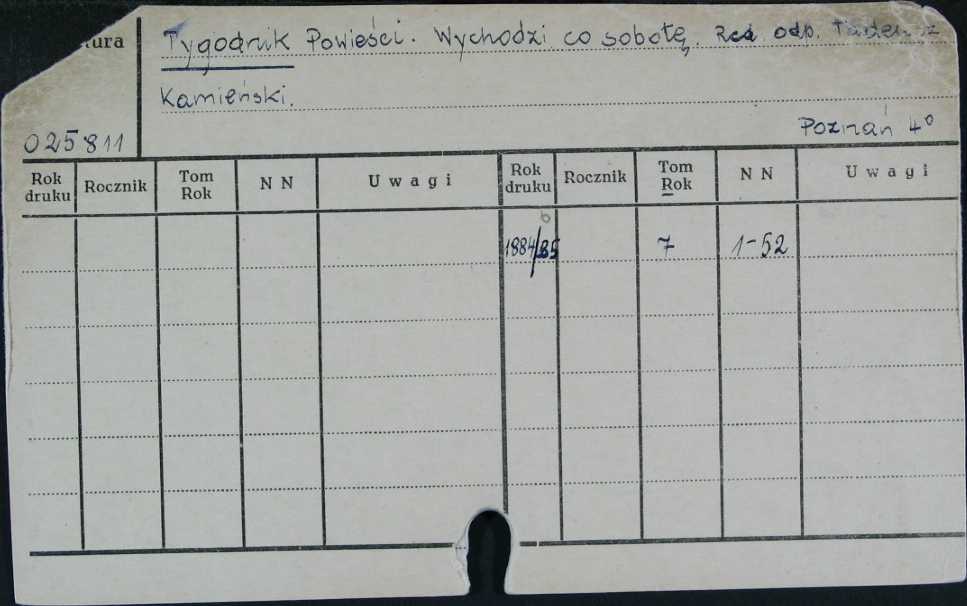 Tygodnik Powieści. Wychodzi co sobotę, Red. odp. Tadeusz
Kamieński.
025811
Poznań 4°
Rok druku Rocznik Tom Rok NN Uwagi Rok druku Rocznik Tom Rok NN Uwagi
1884/85 7 1-52